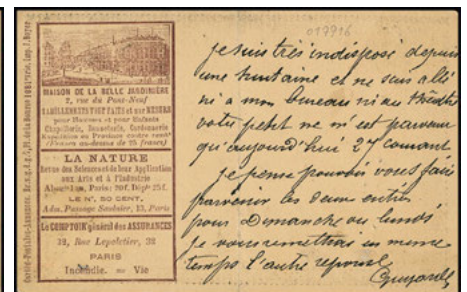 017916
MAISON DE LA BELLE JARDINIÈRE
2, rue du Pont-Neuf
HABILLEMENTS TOUT FAITS et sur MESURE
pour Hommes et pour Enfants
Chapellerie, Bonneterie, Cordonnerie
Expédition en Province contre remb^t
(Franco au-dessus de 25 francs)
LA NATURE
Revue des Sciences et de leur Application
aux Arts et à l'Industrie
Paris: 20f. Dép^ts 25f.
LE N°. 50 CENT.
Adm. Passage Saulnier, 13, Paris
Le COMPTOIR général des ASSURANCES
32, Rue Lepeletier, 32
PARIS
Incendie. — Vie
je suis très indisposé depuis
une huitaine et ne suis allé
ni a mon bureau ni au théâtre
votre petit ne m'est parvenu
qu'aujourd'hui 27 courant
je pense pouvoir vous faire
parvenir les deux entrées
pour Dimanche ou lundi
je vous remettrai en meme
temps l'autre reponse